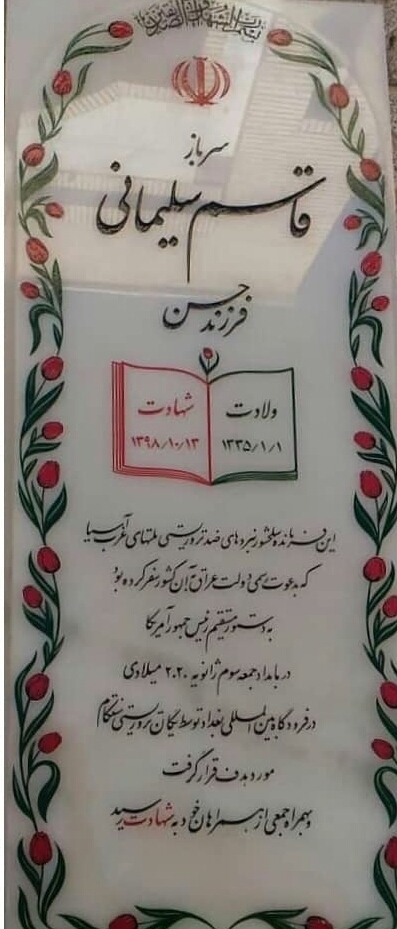 سرباز
قاسم سلیمانی
فرزند حسن
ولادت
۱۳۳۵/۱/۱
شهادت
۱۳۹۸/۱۰/۱۳
این فرمانده سلحشور نبردهای ضد تروریستی ملتهای غرب آسیا
که بدعوت رسمی دولت عراق به آن کشور سفر کرده بود
به دستور مستقیم رئیس جمهور آمریکا
در بامداد جمعه سوم ژانویه ۲۰۲۰ میلادی
در فرودگاه بین المللی بغداد توسط یگان تروریستی سنتکام
مورد هدف قرار گرفت
و بهمراه جمعی از همراهان خود به شهادت رسید